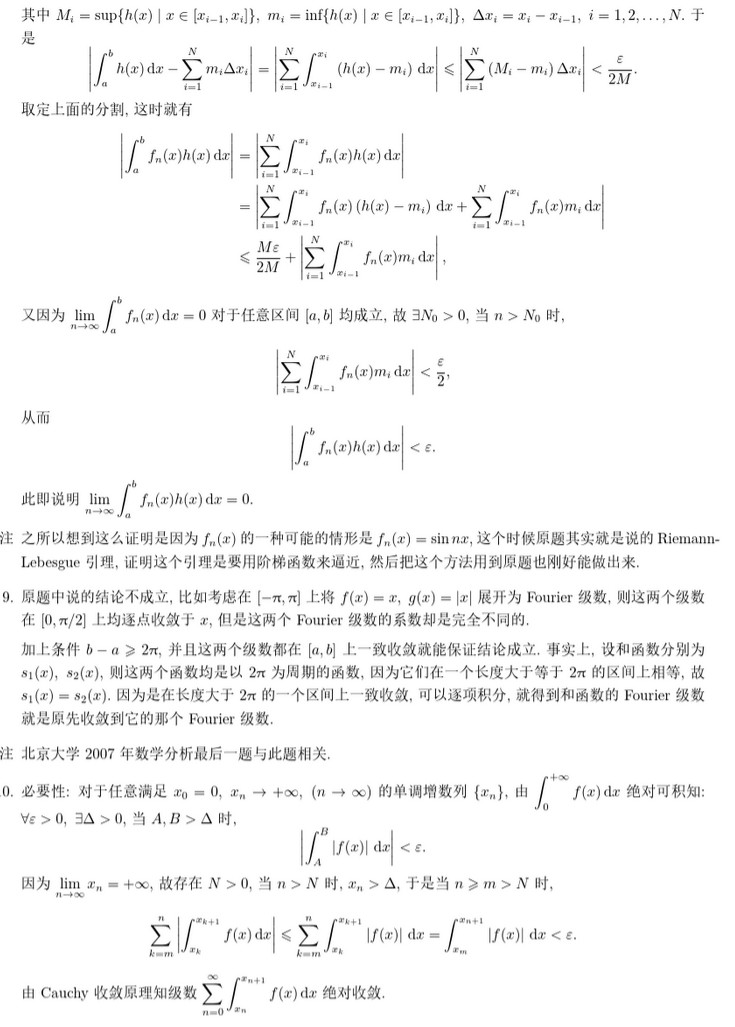 其中 $M_i = \sup\{h(x) \mid x \in [x_{i-1}, x_i]\}$, $m_i = \inf\{h(x) \mid x \in [x_{i-1}, x_i]\}$, $\Delta x_i = x_i - x_{i-1}$, $i = 1, 2, \ldots, N$. 于
是
$$\left|\int_a^b h(x)\,\mathrm{d}x - \sum_{i=1}^N m_i \Delta x_i\right| = \left|\sum_{i=1}^N \int_{x_{i-1}}^{x_i} (h(x) - m_i)\,\mathrm{d}x\right| \leqslant \left|\sum_{i=1}^N (M_i - m_i)\,\Delta x_i\right| < \frac{\varepsilon}{2M}.$$
取定上面的分割, 这时就有
$$\left|\int_a^b f_n(x)h(x)\,\mathrm{d}x\right| = \left|\sum_{i=1}^N \int_{x_{i-1}}^{x_i} f_n(x)h(x)\,\mathrm{d}x\right|$$
$$= \left|\sum_{i=1}^N \int_{x_{i-1}}^{x_i} f_n(x)\,(h(x) - m_i)\,\mathrm{d}x + \sum_{i=1}^N \int_{x_{i-1}}^{x_i} f_n(x)m_i\,\mathrm{d}x\right|$$
$$\leqslant \frac{M\varepsilon}{2M} + \left|\sum_{i=1}^N \int_{x_{i-1}}^{x_i} f_n(x)m_i\,\mathrm{d}x\right|,$$
又因为 $\lim\limits_{n\to\infty} \int_a^b f_n(x)\,\mathrm{d}x = 0$ 对于任意区间 $[a, b]$ 均成立, 故 $\exists N_0 > 0$, 当 $n > N_0$ 时,
$$\left|\sum_{i=1}^N \int_{x_{i-1}}^{x_i} f_n(x)m_i\,\mathrm{d}x\right| < \frac{\varepsilon}{2},$$
从而
$$\left|\int_a^b f_n(x)h(x)\,\mathrm{d}x\right| < \varepsilon.$$
此即说明 $\lim\limits_{n\to\infty} \int_a^b f_n(x)h(x)\,\mathrm{d}x = 0$.
注 之所以想到这么证明是因为 $f_n(x)$ 的一种可能的情形是 $f_n(x) = \sin nx$, 这个时候原题其实就是说的 Riemann-
Lebesgue 引理, 证明这个引理是要用阶梯函数来逼近, 然后把这个方法用到原题也刚好能做出来.
9. 原题中说的结论不成立, 比如考虑在 $[-\pi, \pi]$ 上将 $f(x) = x$, $g(x) = |x|$ 展开为 Fourier 级数, 则这两个级数
在 $[0, \pi/2]$ 上均逐点收敛于 $x$, 但是这两个 Fourier 级数的系数却是完全不同的.
加上条件 $b - a \geqslant 2\pi$, 并且这两个级数都在 $[a, b]$ 上一致收敛就能保证结论成立. 事实上, 设和函数分别为
$s_1(x)$, $s_2(x)$, 则这两个函数均是以 $2\pi$ 为周期的函数, 因为它们在一个长度大于等于 $2\pi$ 的区间上相等, 故
$s_1(x) = s_2(x)$. 因为是在长度大于 $2\pi$ 的一个区间上一致收敛, 可以逐项积分, 就得到和函数的 Fourier 级数
就是原先收敛到它的那个 Fourier 级数.
注 北京大学 2007 年数学分析最后一题与此题相关.
0. 必要性: 对于任意满足 $x_0 = 0$, $x_n \to +\infty$, $(n \to \infty)$ 的单调增数列 $\{x_n\}$, 由 $\int_0^{+\infty} f(x)\,\mathrm{d}x$ 绝对可积知:
$\forall \varepsilon > 0$, $\exists \Delta > 0$, 当 $A, B > \Delta$ 时,
$$\left|\int_A^B |f(x)|\,\mathrm{d}x\right| < \varepsilon.$$
因为 $\lim\limits_{n\to\infty} x_n = +\infty$, 故存在 $N > 0$, 当 $n > N$ 时, $x_n > \Delta$, 于是当 $n \geqslant m > N$ 时,
$$\sum_{k=m}^n \left|\int_{x_k}^{x_{k+1}} f(x)\,\mathrm{d}x\right| \leqslant \sum_{k=m}^n \int_{x_k}^{x_{k+1}} |f(x)|\,\mathrm{d}x = \int_{x_m}^{x_{n+1}} |f(x)|\,\mathrm{d}x < \varepsilon.$$
由 Cauchy 收敛原理知级数 $\sum\limits_{n=0}^\infty \int_{x_n}^{x_{n+1}} f(x)\,\mathrm{d}x$ 绝对收敛.